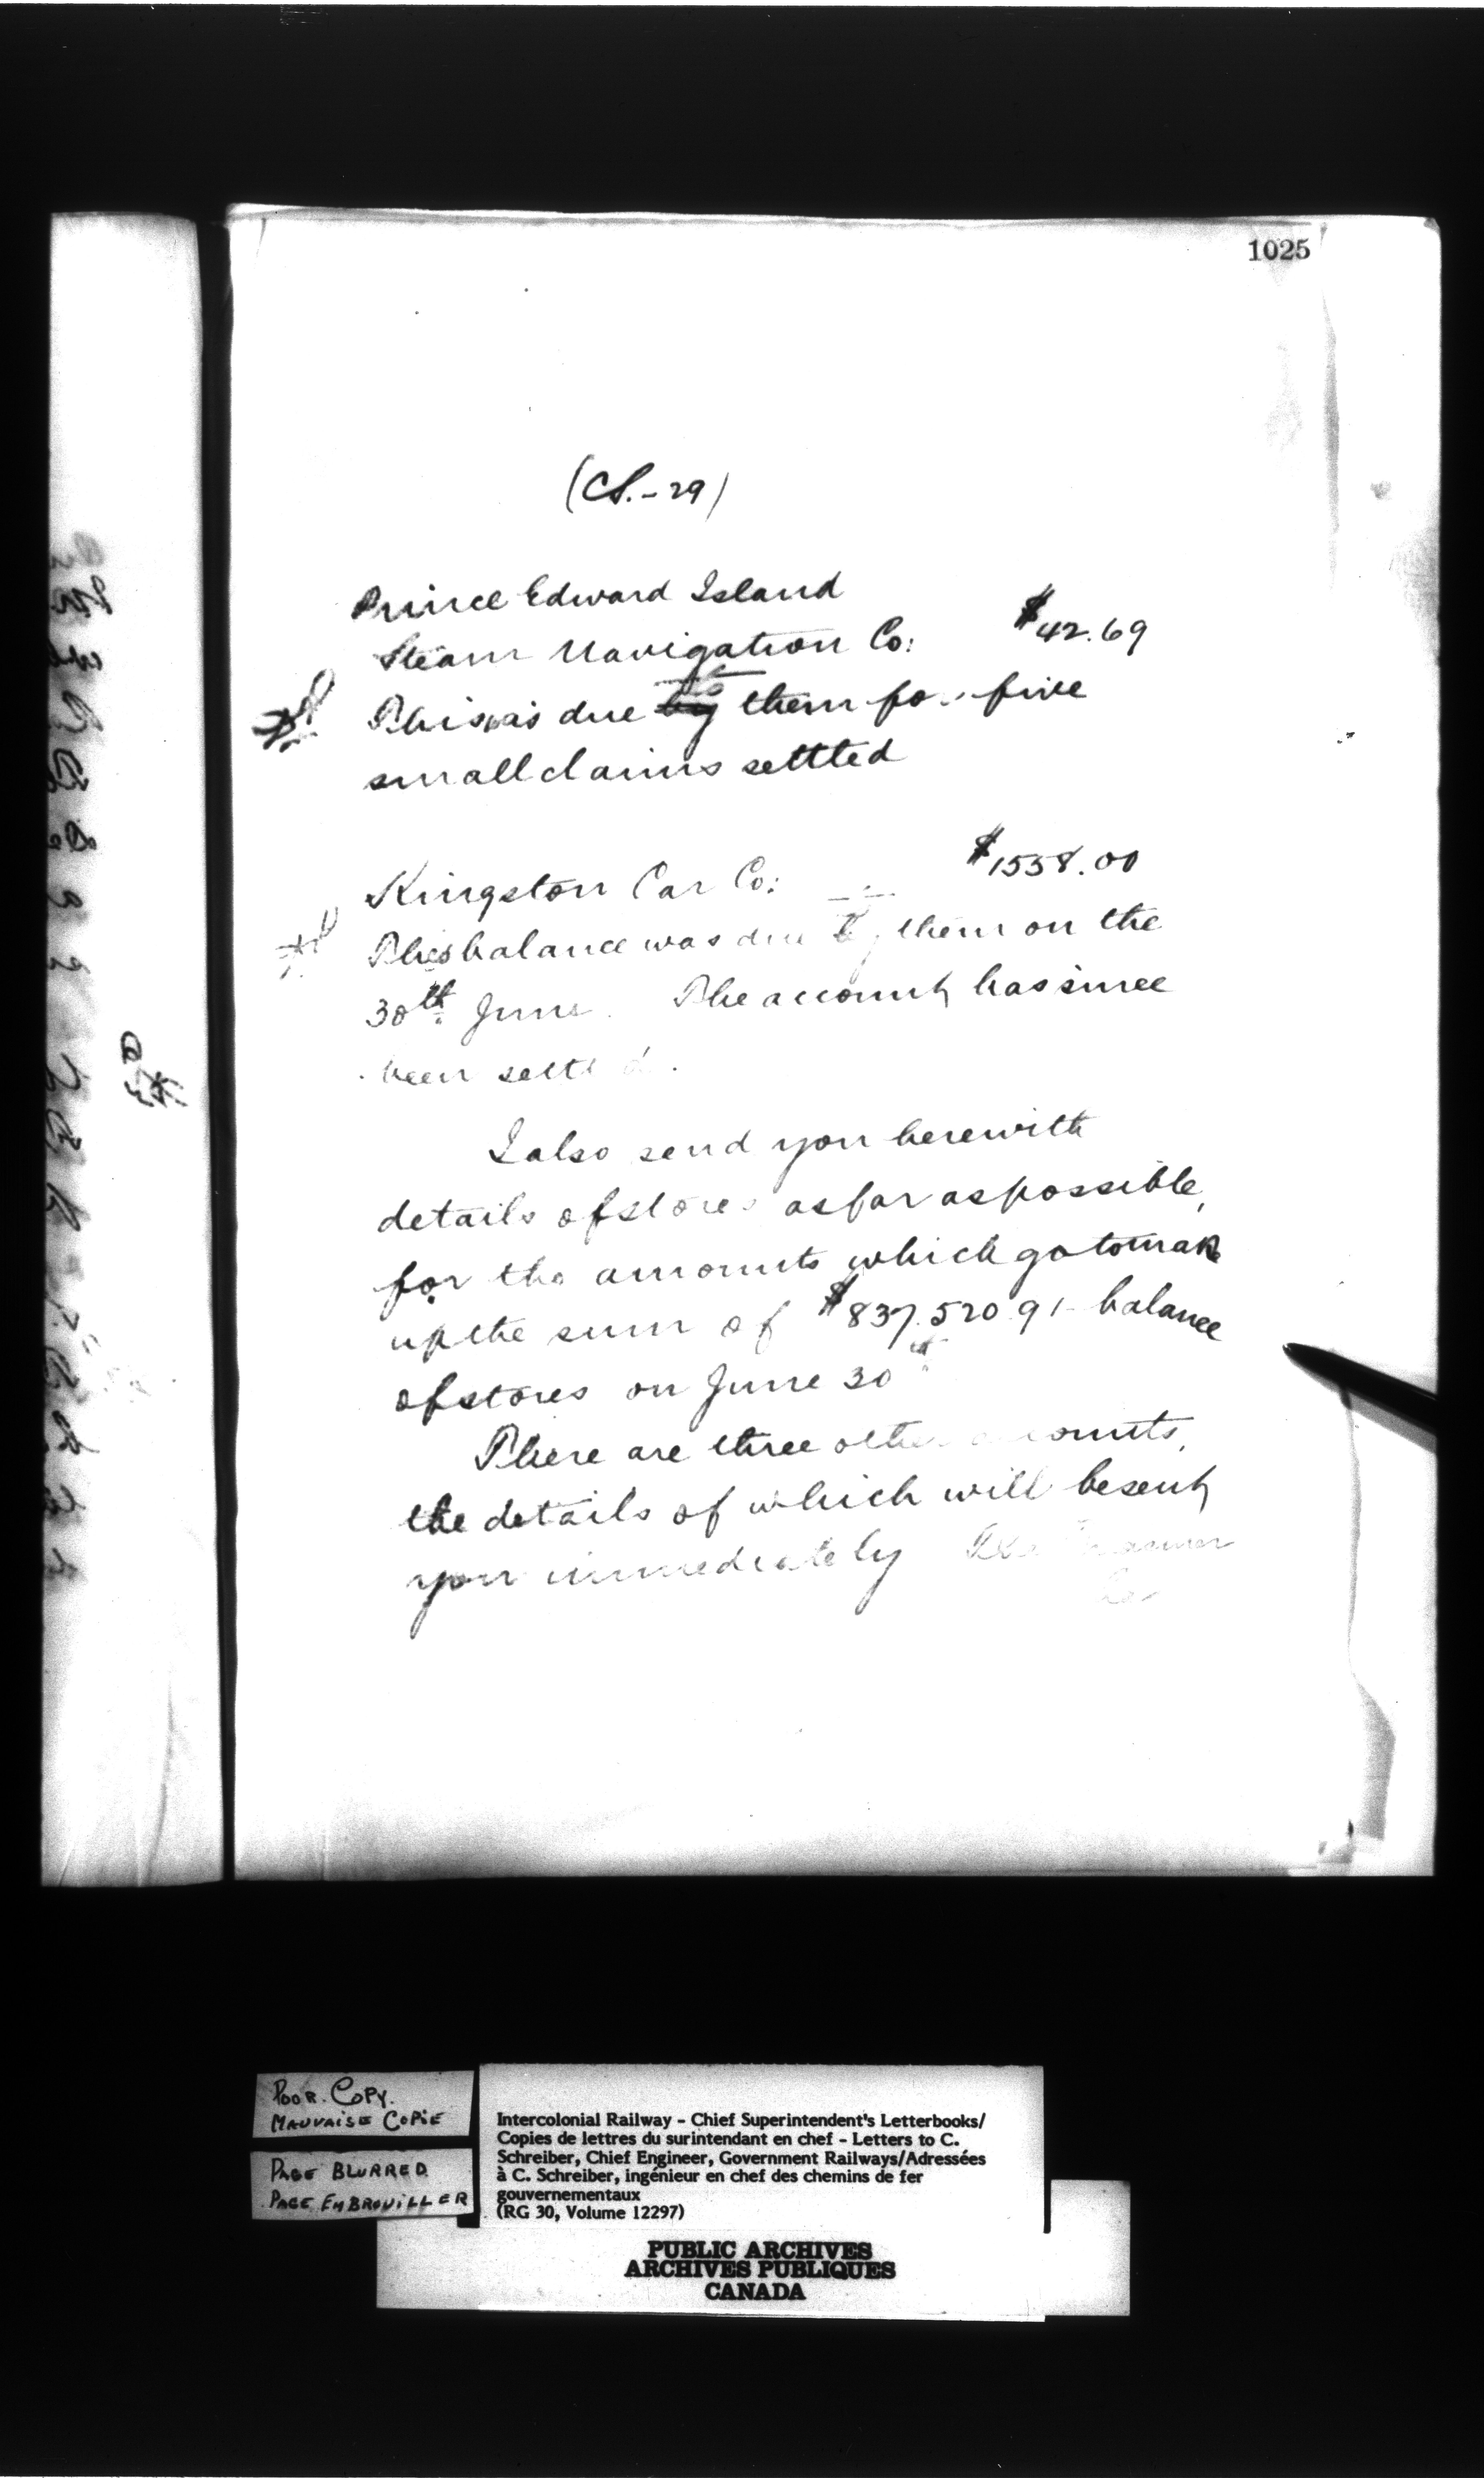 1025
(CS.-29)
Prince Edward Island
Steam Navigation Co: $42.69
to
This was due by them for five
small claims settled
Kingston Car Co: $1558.00
This balance was due by them on the
30th June. The account has since
been settled.
I also send you herewith
details of stores as far as possible,
for the amounts which go to make
up the sum of $837.520.91 balance
of stores on June 30th
There are three other accounts,
the details of which will be sent
you immediately
POOR. COPY.
MAUVAISE COPIE
PAGE BLURRED
PAGE EMBROUILLER
Intercolonial Railway - Chief Superintendent's Letterbooks/
Copies de lettres du surintendant en chef - Letters to C.
Schreiber, Chief Engineer, Government Railways/Adressées
à C. Schreiber, ingénieur en chef des chemins de fer
gouvernementaux
(RG 30, Volume 12297)
PUBLIC ARCHIVES
ARCHIVES PUBLIQUES
CANADA